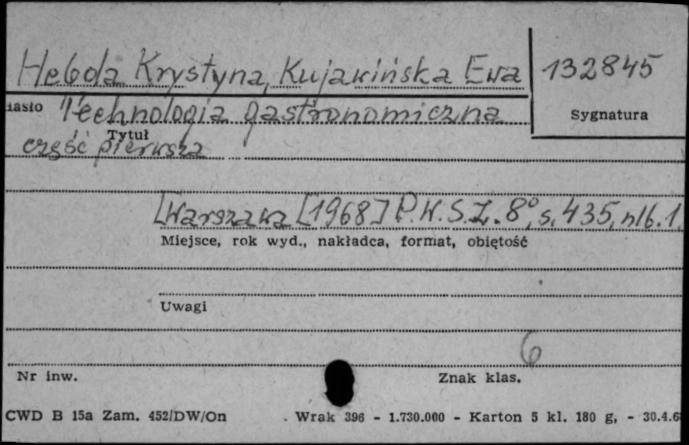 Hebda Krystyna, Kujawińska Ewa 132845
Hasło Technologia gastronomiczna Sygnatura
Tytuł
część pierwsza
[Warszawa [1968] P.W.S.Z. 8°, s. 435, nlb. 1.
Miejsce, rok wyd., nakładca, format, objętość
Uwagi
6
Nr inw. Znak klas.
CWD B 15a Zam. 452/DW/On . Wrak 396 - 1.730.000 - Karton 5 kl. 180 g, - 30.4.6